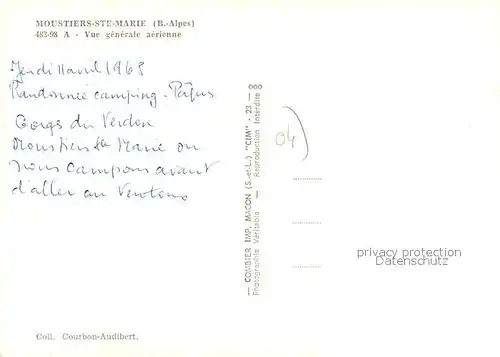 MOUSTIERS-STE-MARIE (B.-Alpes)
483-98 A - Vue générale aérienne
Jeudi 11 avril 1968
Randonnée camping - Pâques
Gorges du Verdon
Moustiers Ste Marie où
nous campons avant
d'aller au Ventoux
— COMBIER IMP. MACON (S.-et-L.) "CIM" - 23 — 000
Photographie Véritable — Reproduction Interdite
04)
privacy protection
Datenschutz
Coll. Courbon-Audibert.